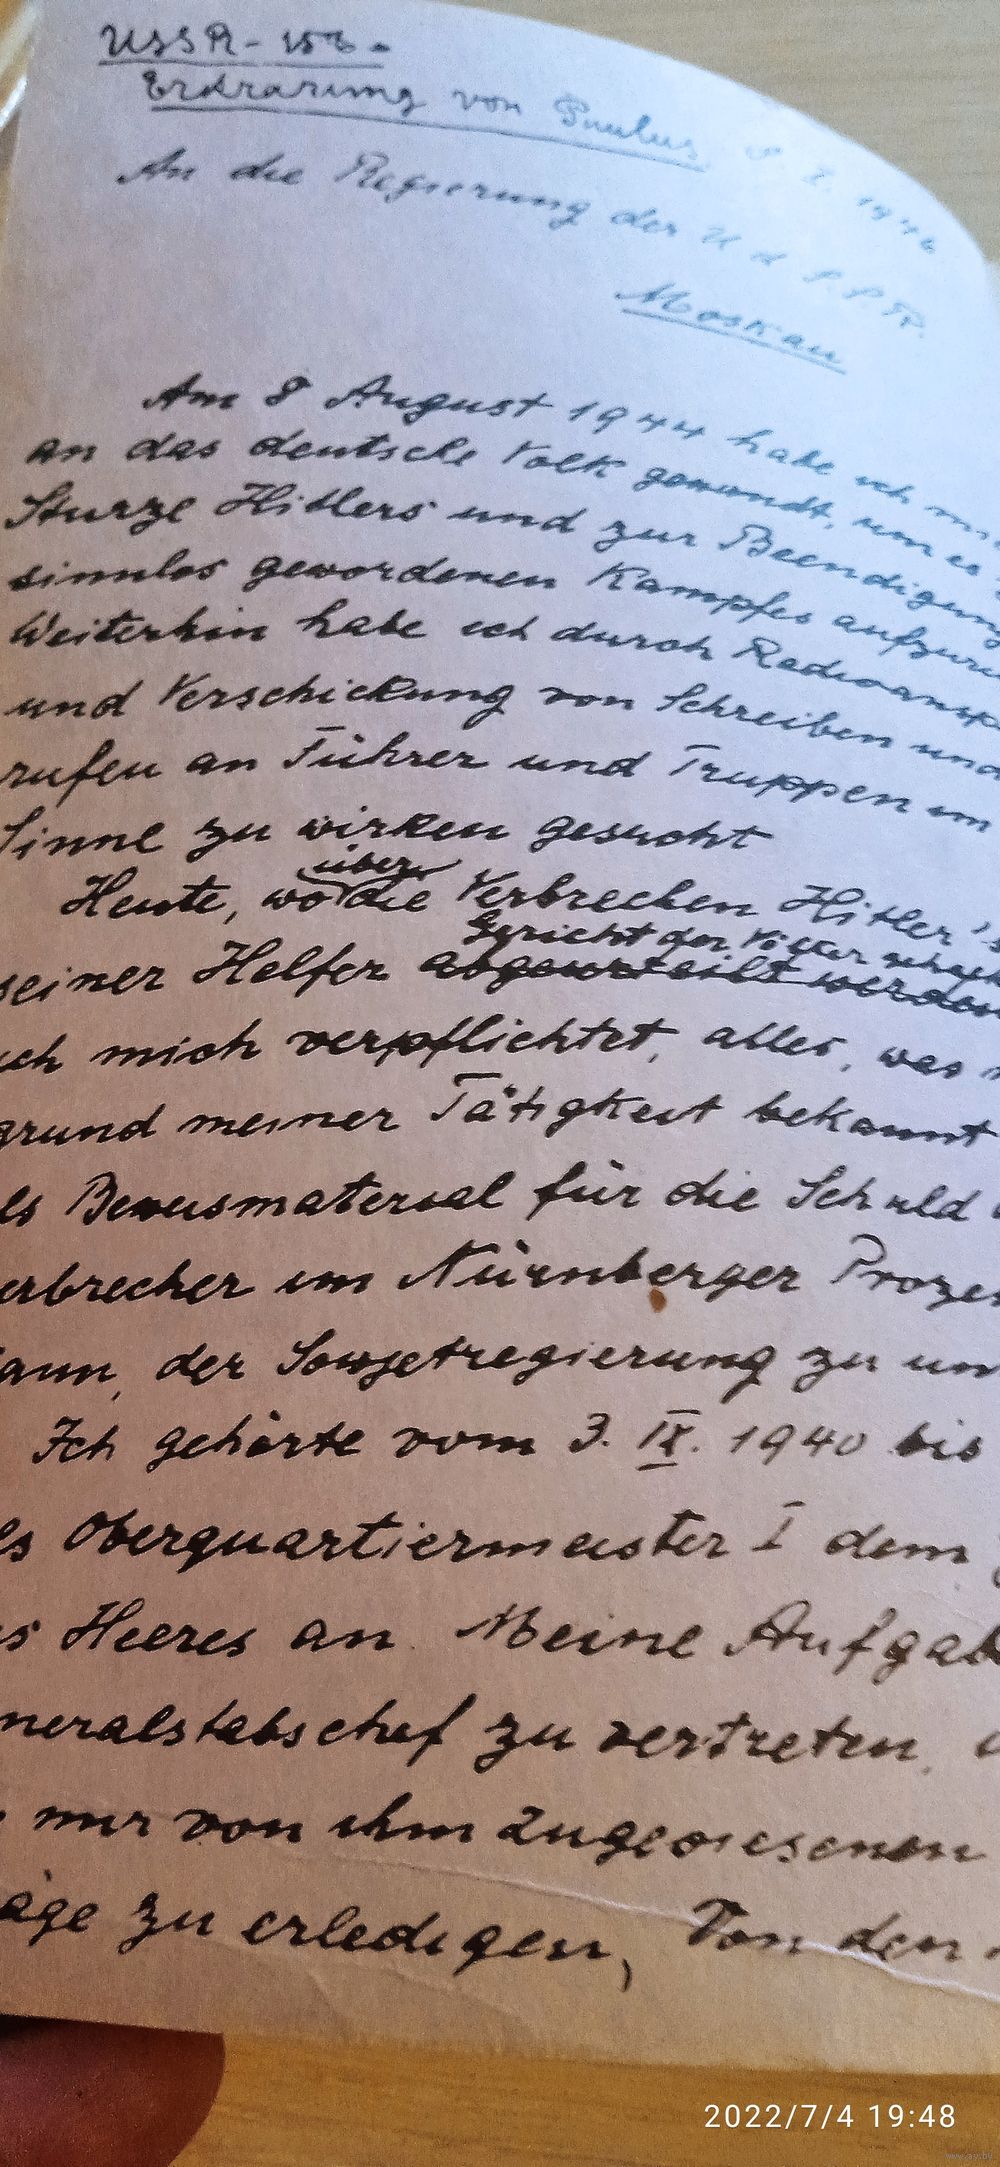 USSR - 156.
Erklärung von Paulus 8. I. 1946
An die Regierung der UdSSR.
Moskau
Am 8 August 1944 habe ich
an das deutsche Volk gewandt, um es
Sturze Hitlers und zur Beendigung
sinnlos gewordenen Kampfes
Weiterhin habe ich durch
und Verschickung von Schreiben und
rufen an Führer und Truppen im
Sinne zu wirken gesucht
über
Heute, wo die Verbrechen Hitler's
Gericht der Völker
seiner Helfer abgeurteilt werden
ich mich verpflichtet, alles, was
grund meiner Tätigkeit bekannt
ls Beweismaterial für die Schuld
erbrecher im Nürnberger
ann, der Sowjetregierung zu
Ich gehörte vom 3. IX. 1940 bis
ls Oberquartiermeister I dem
es Heeres an. Meine
neralstabschef zu vertreten,
mir von ihm zugewiesenen
äge zu erledigen, Von den
2022/7/4 19:48
www.ay.by